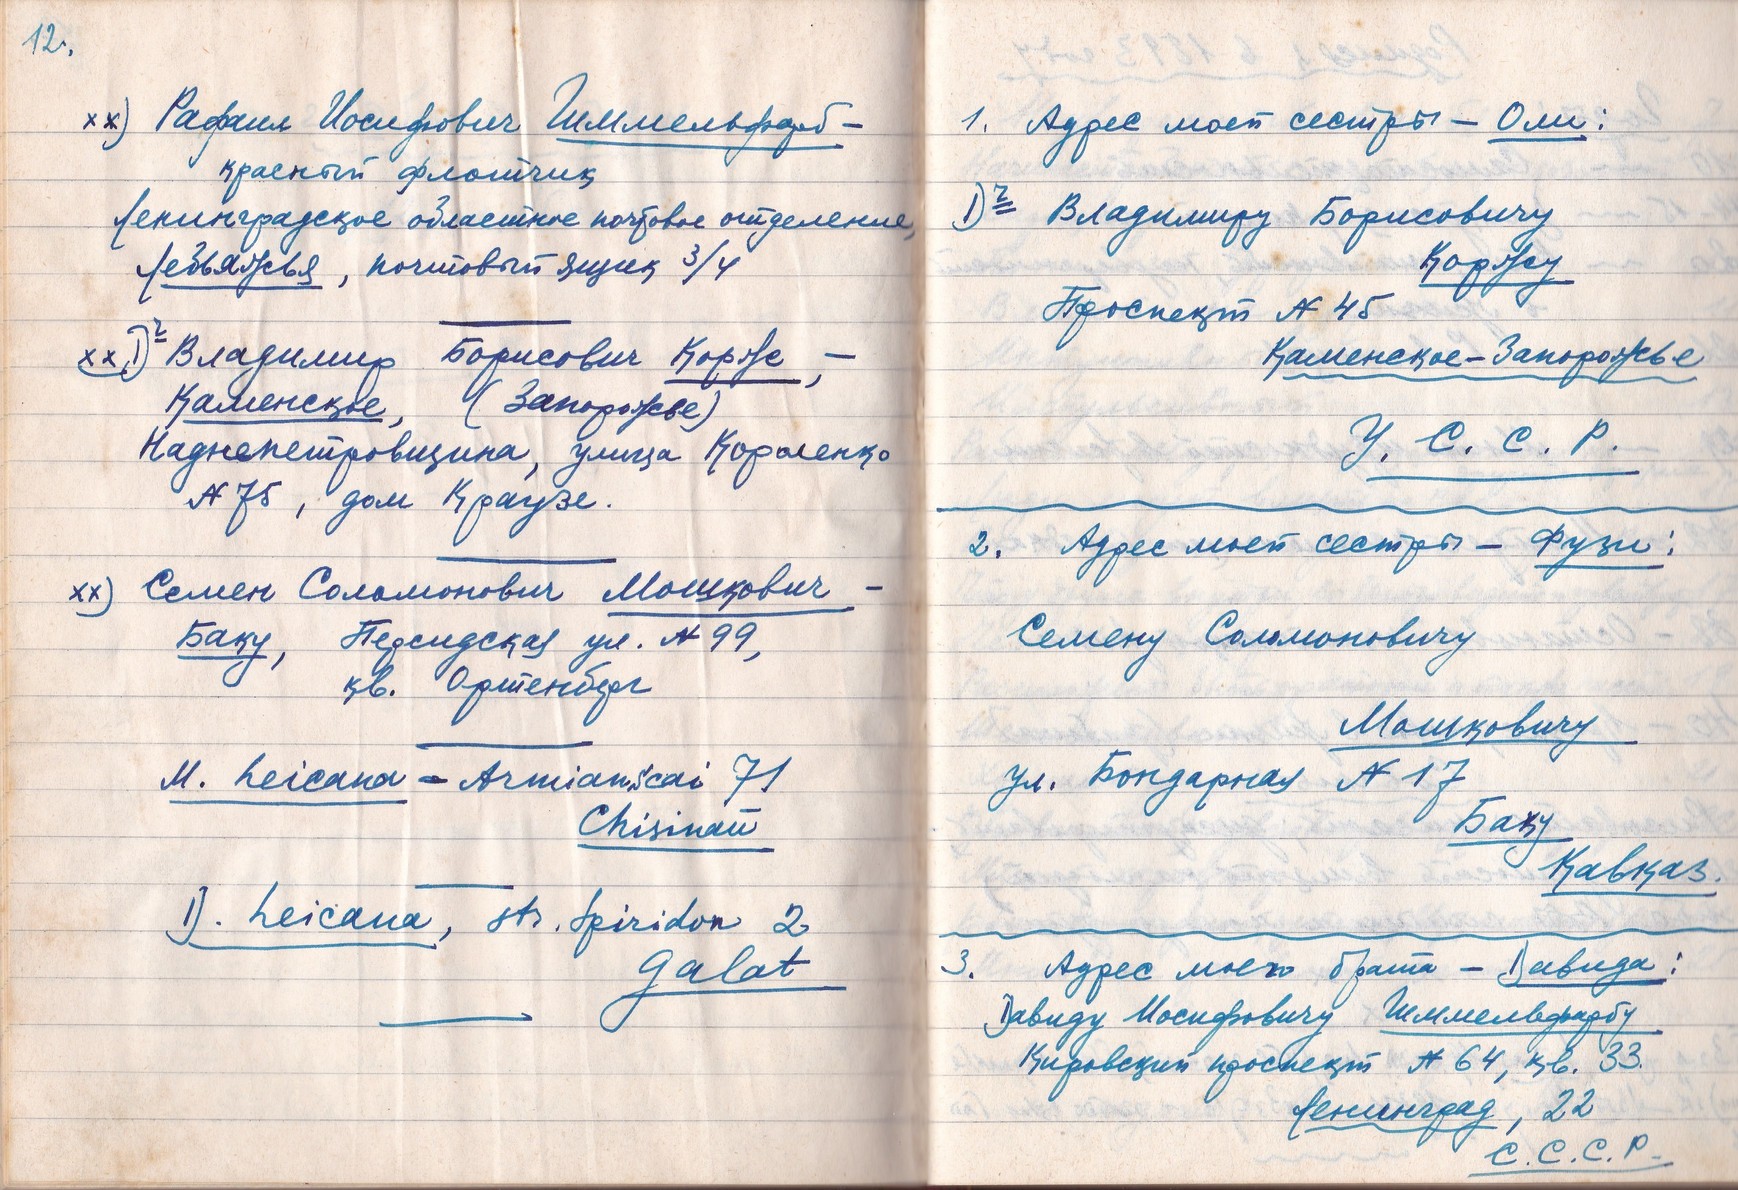 12.
xx) Рафаил Иосифович Гиммельфарб –
красный флотчик
Ленинградское областное почтовое отделение,
Лебяжья, почтовый ящик 3/4
xx) Д-г Владимир Борисович Корж, –
Каменское, (Запорожье)
Наднепетровщина, улица Короленко
№ 75, дом Краузе.
xx) Семен Соломонович Мошкович –
Баку, Персидская ул. № 99,
кв. Ортенберг
M. Leicana – Armianscai 71
Chisinau
D. Leicana, str. Spiridon 2
Galat
1. Адрес моей сестры – Оли:
Д-г Владимиру Борисовичу
Коржу
Проспект № 45
Каменское – Запорожье
У. С. С. Р.
2. Адрес моей сестры – Фузи:
Семену Соломоновичу
Мошковичу
ул. Бондарная № 17
Баку
Кавказ.
3. Адрес моего брата – Давида:
Давиду Иосифовичу Гиммельфарбу
Кировский проспект № 64, кв. 33.
Ленинград, 22
С.С.С.Р.